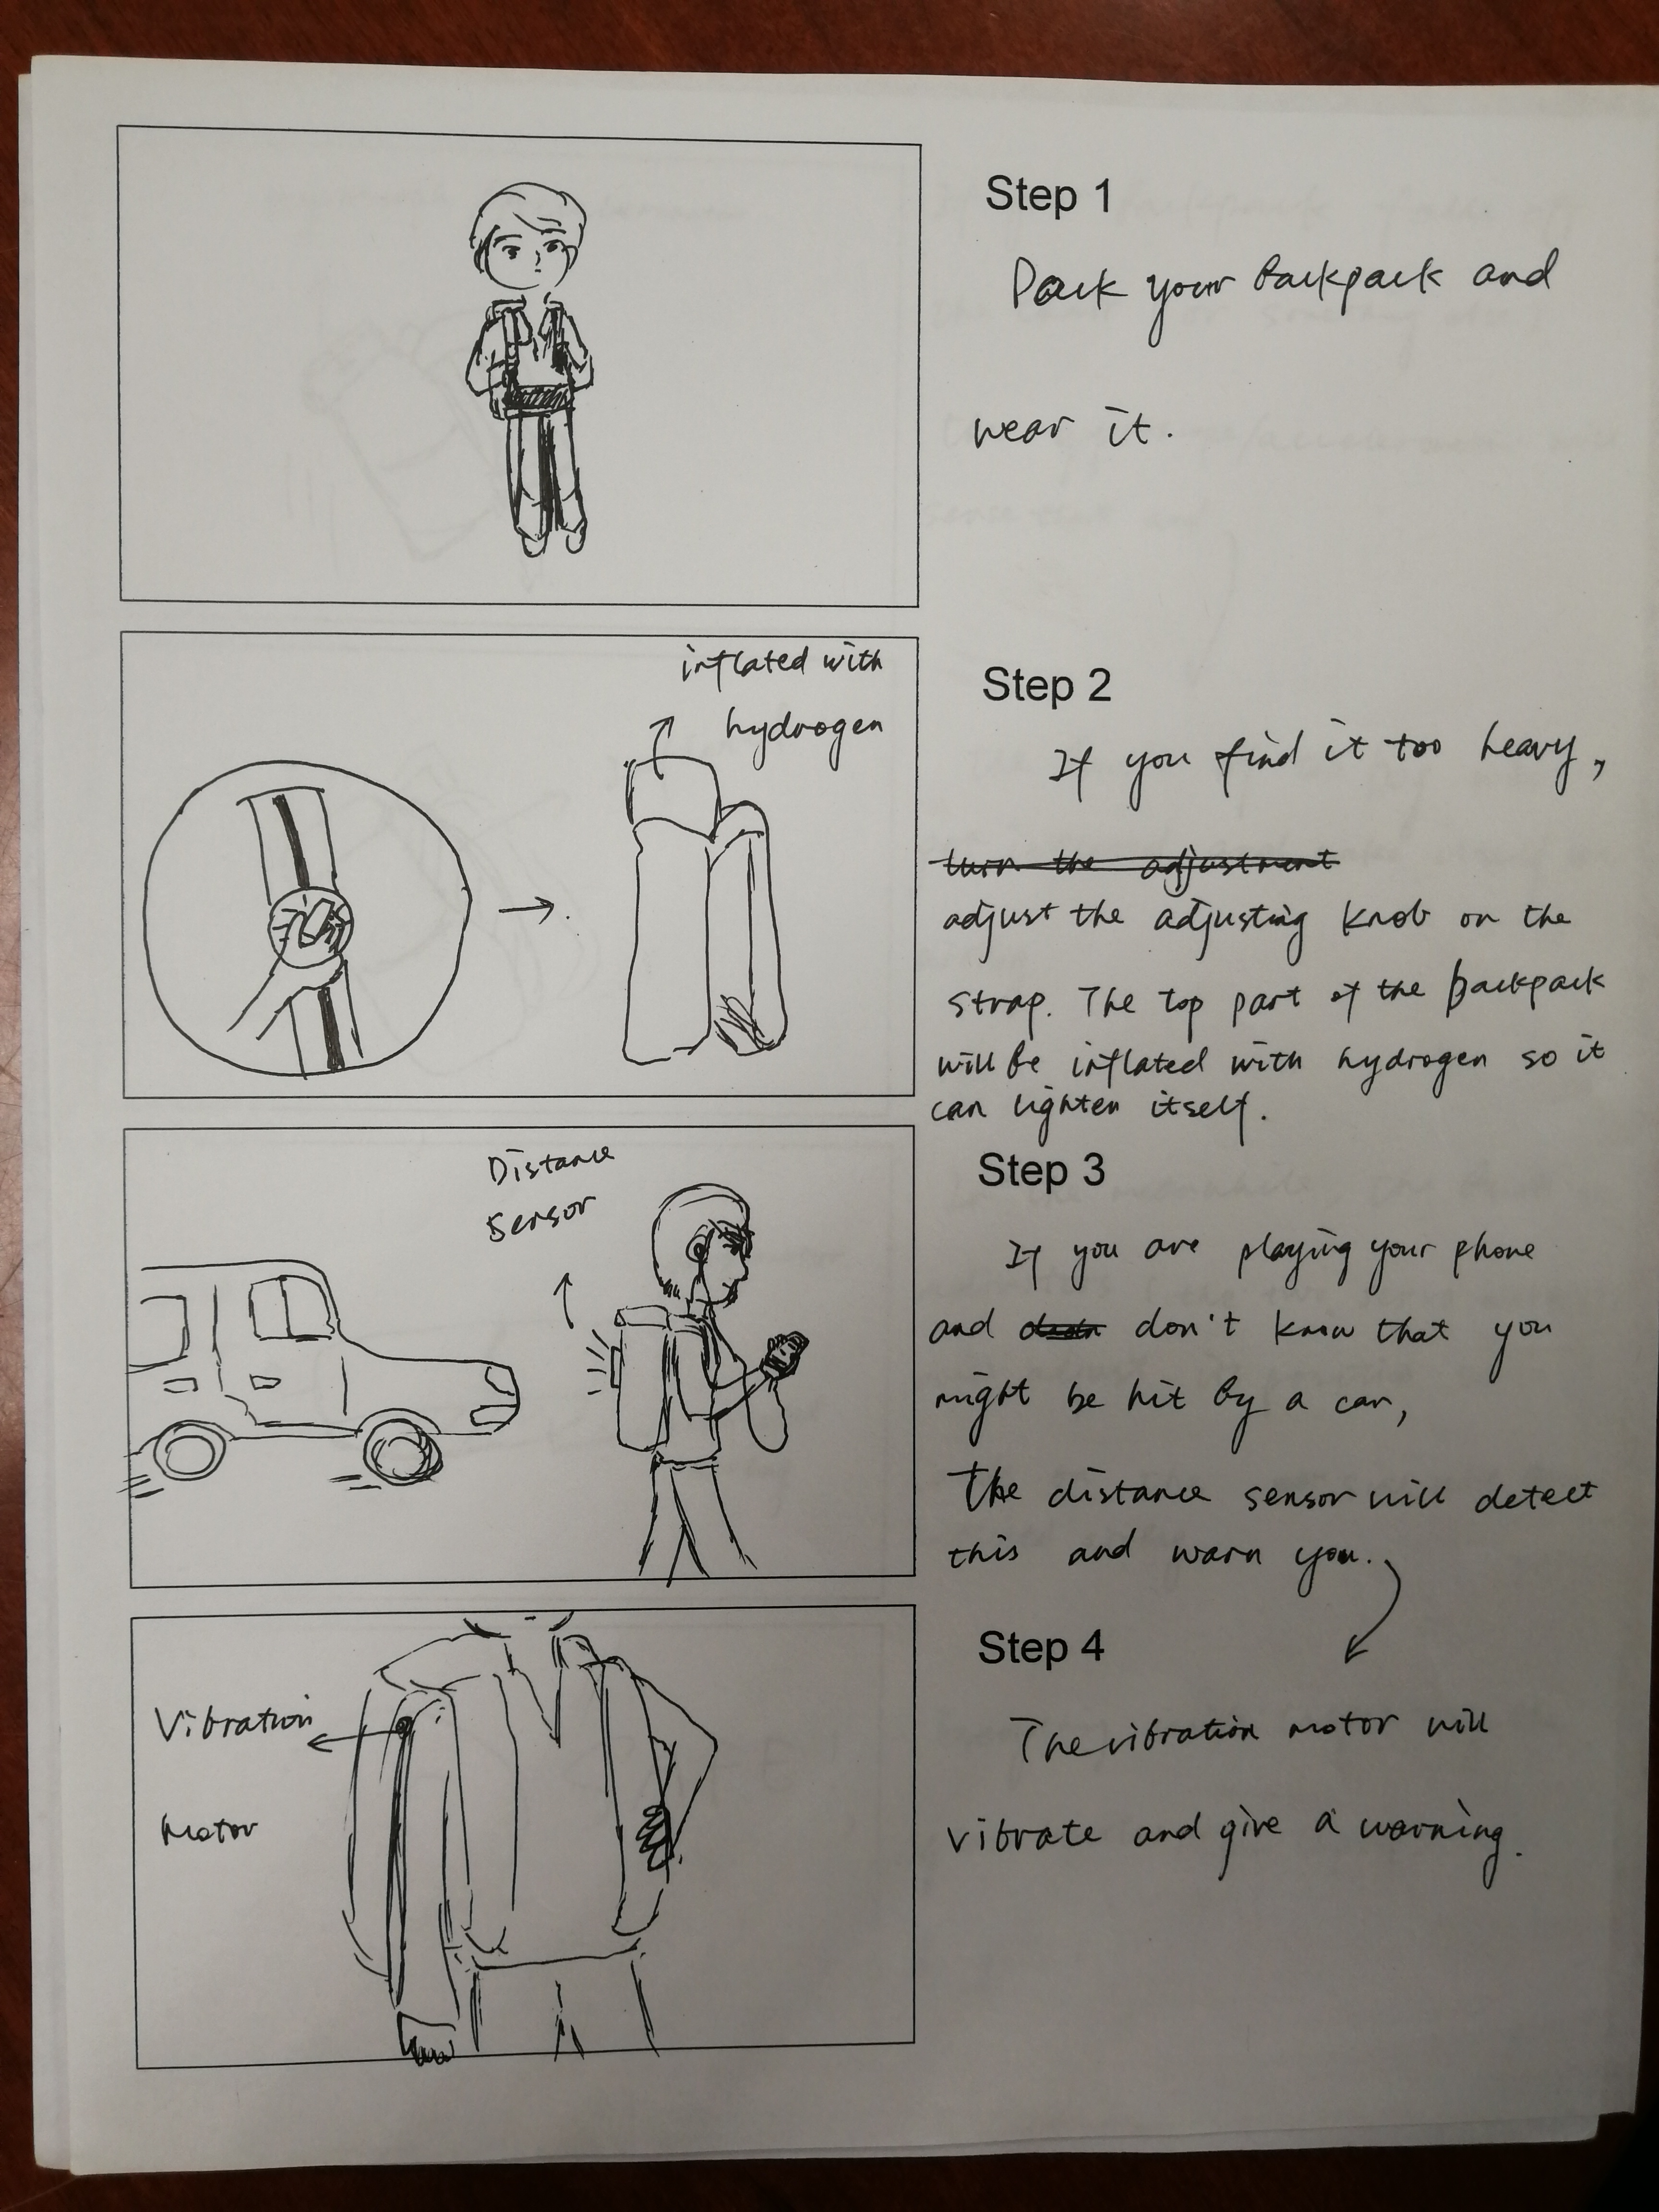 Step 1
Pack your backpack and
wear it.
inflated with
hydrogen
Step 2
If you find it too heavy,
turn the adjustment
adjust the adjusting knob on the
strap. The top part of the backpack
will be inflated with hydrogen so it
can lighten itself.
Distance
Sensor
Step 3
If you are playing your phone
and don't know that you
might be hit by a car,
The distance sensor will detect
this and warn you.
Vibration
Motor
Step 4
The vibration motor will
vibrate and give a warning.